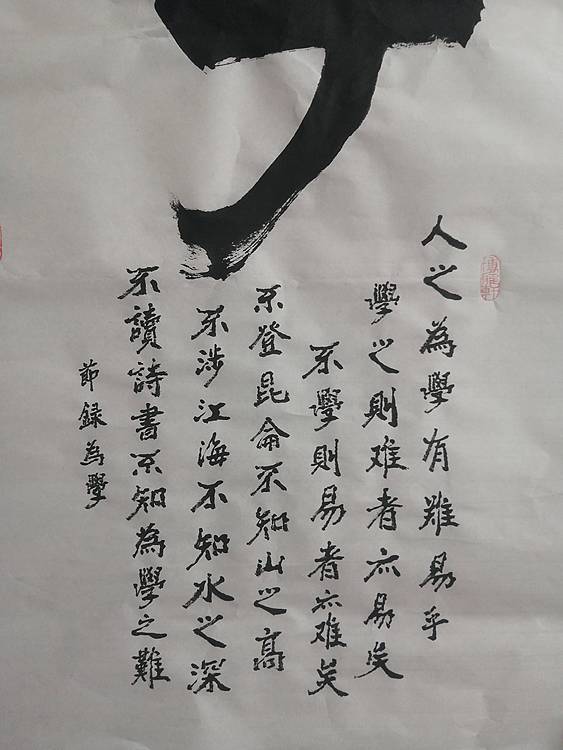 人之為學有難易乎
學之則难者亦易矣
不學則易者亦难矣
不登昆侖不知山之高
不涉江海不知水之深
不讀詩書不知為學之難
節録為學